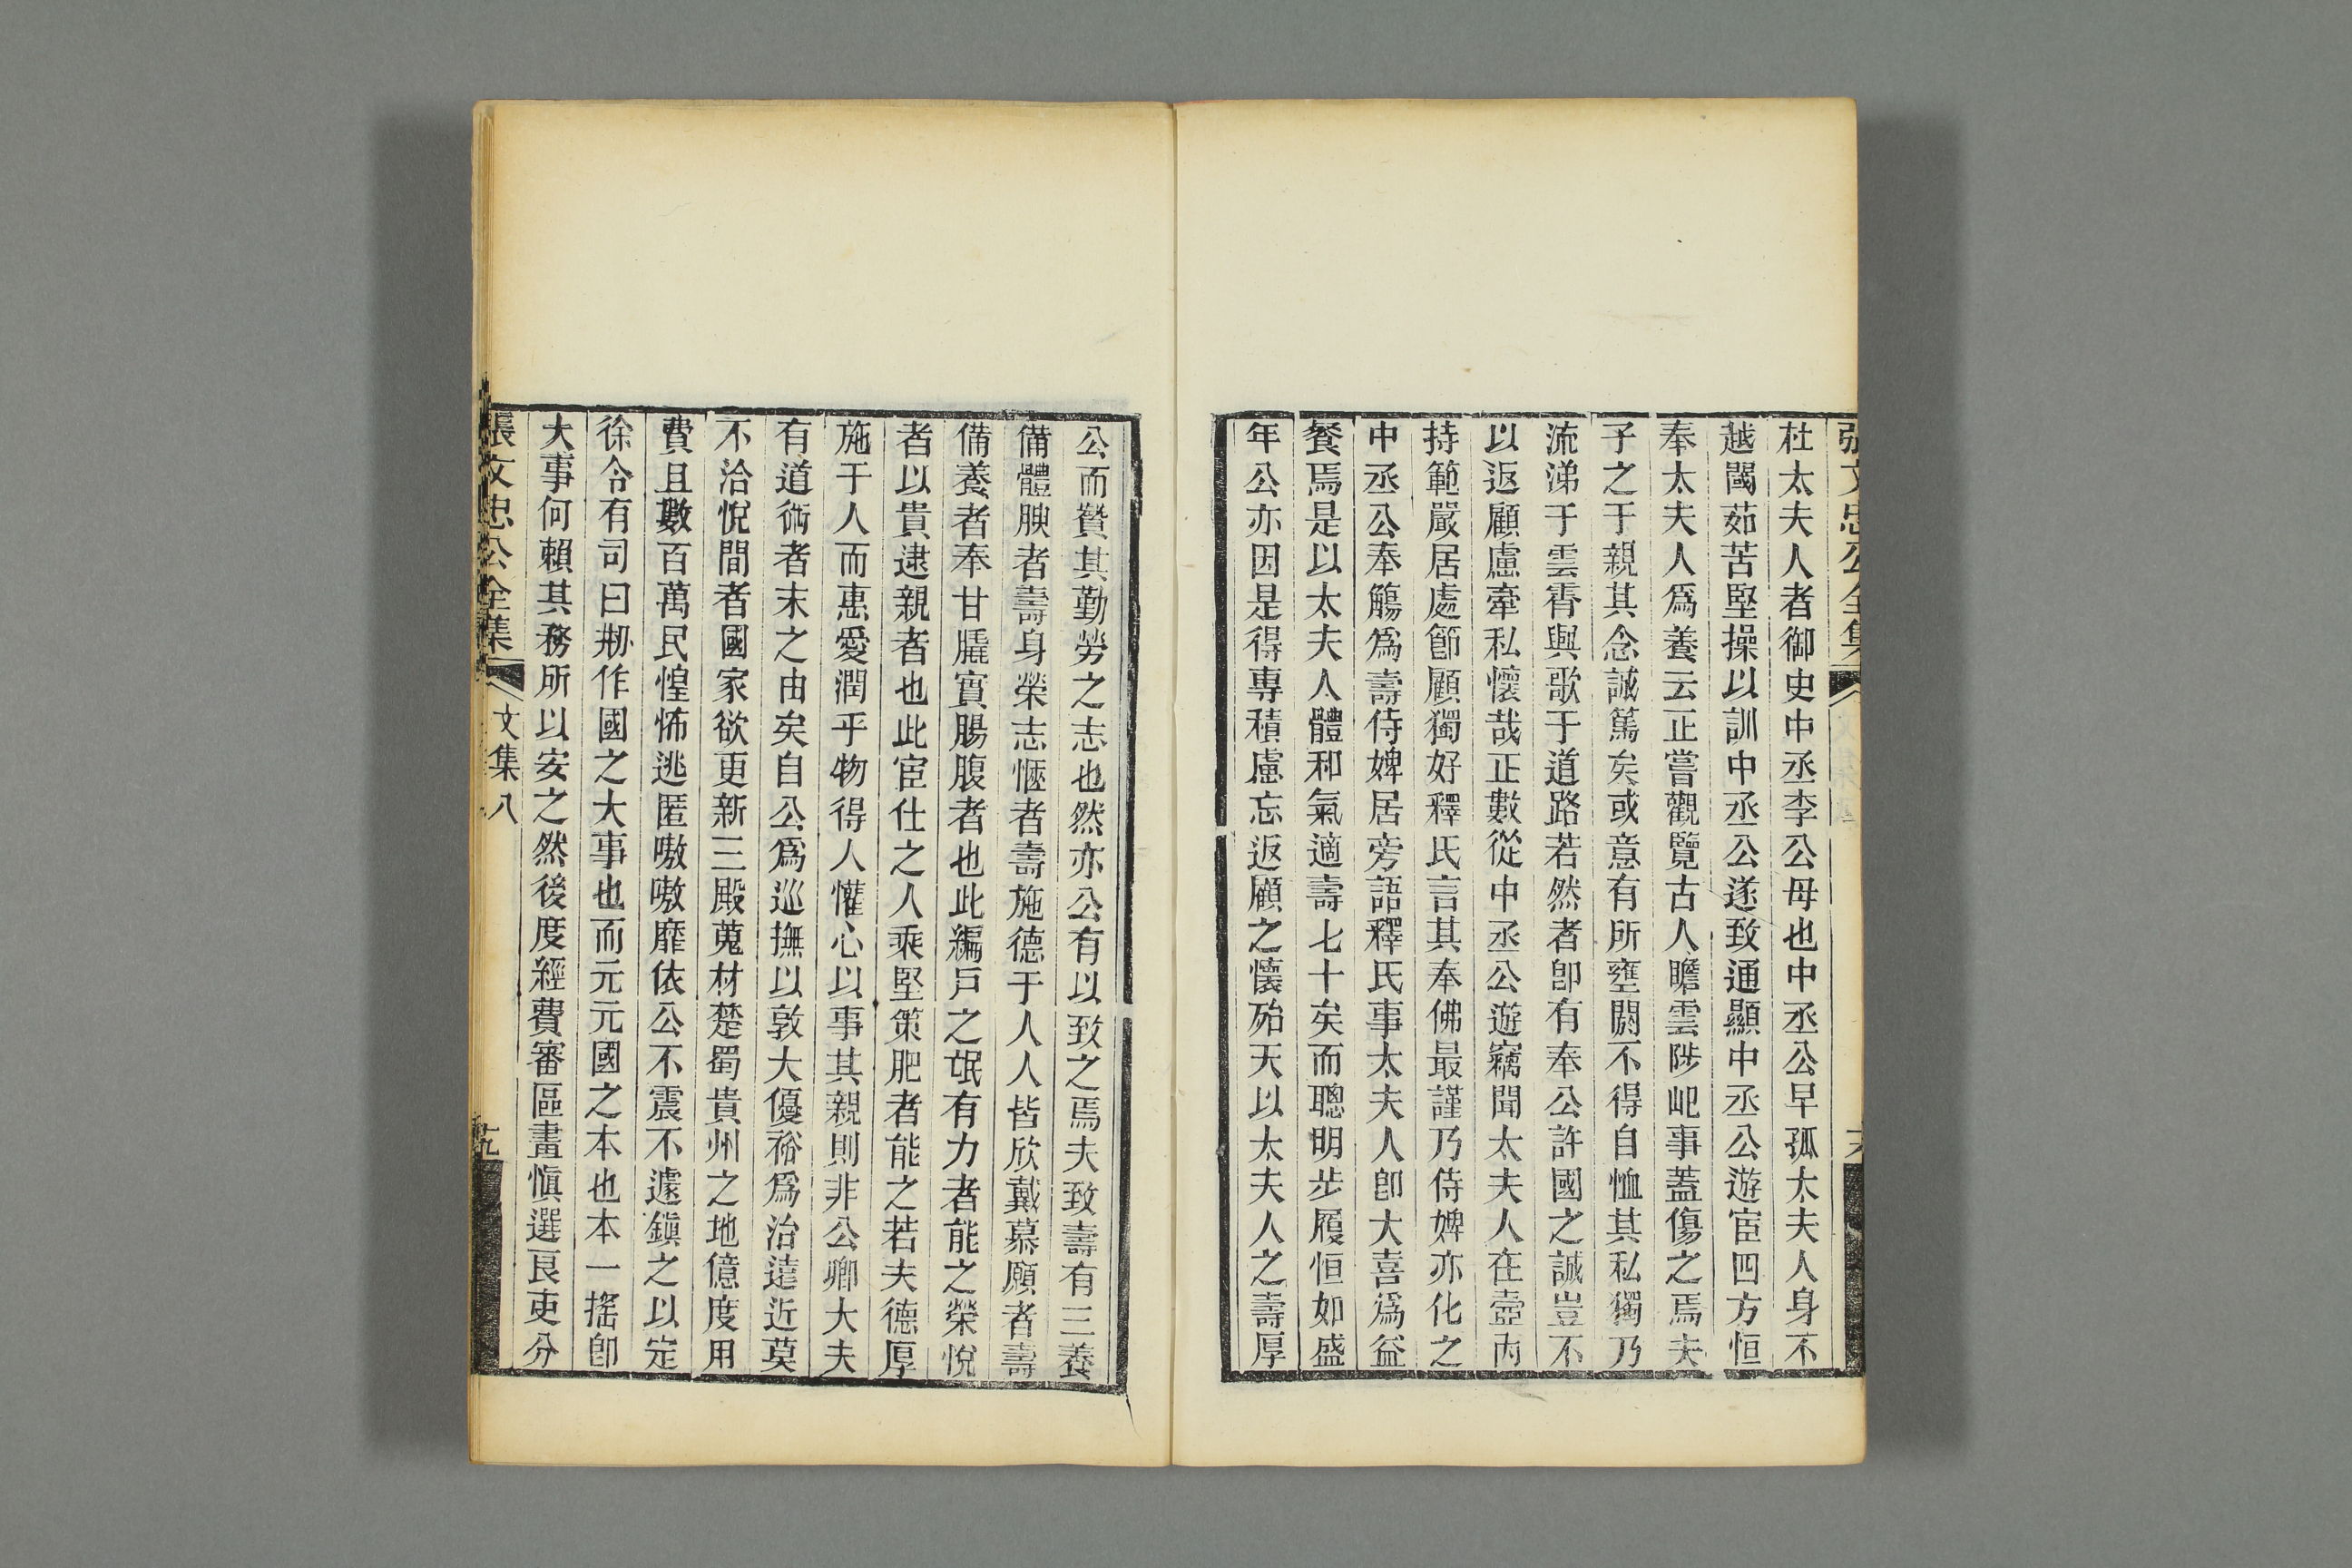 張文忠公全集
杜太夫人者御史中丞李公母也中丞公早孤太夫人身不
越閾茹苦堅操以訓中丞公遂致通顯中丞公遊宦四方恒
奉太夫人爲養云正嘗觀覽古人瞻雲陟屺事蓋傷之焉夫
子之于親其念誠篤矣或意有所壅閼不得自恤其私獨乃
流涕于雲霄與歌于道路若然者卽有奉公許國之誠豈不
以返顧慮牽私懷哉正數從中丞公遊竊聞太夫人在壼內
持範嚴居處節顧獨好釋氏言其奉佛最謹乃侍婢亦化之
中丞公奉觴爲壽侍婢居旁語釋氏事太夫人卽大喜爲益
餐焉是以太夫人體和氣適壽七十矣而聰明步履恒如盛
年公亦因是得專積慮忘返顧之懷殆天以太夫人之壽厚
公而贊其勤勞之志也然亦公有以致之焉夫致壽有三養
備體腴者壽身榮志愜者壽施德于人人皆欣戴慕願者壽
備養者奉甘膬實腸腹者也此編戶之氓有力者能之榮悅
者以貴逮親者也此宦仕之人乘堅策肥者能之若夫德厚
施于人而惠愛潤乎物得人懽心以事其親則非公卿大夫
有道術者末之由矣自公爲巡撫以敦大優裕爲治遠近莫
不洽悅間者國家欲更新三殿蒐材楚蜀貴州之地億度用
費且數百萬民惶怖逃匿嗷嗷靡依公不震不遽鎭之以定
徐令有司曰刱作國之大事也而元元國之本也本一搖卽
大事何賴其務所以安之然後度經費審區畫愼選良吏分
張文忠公全集
文集八